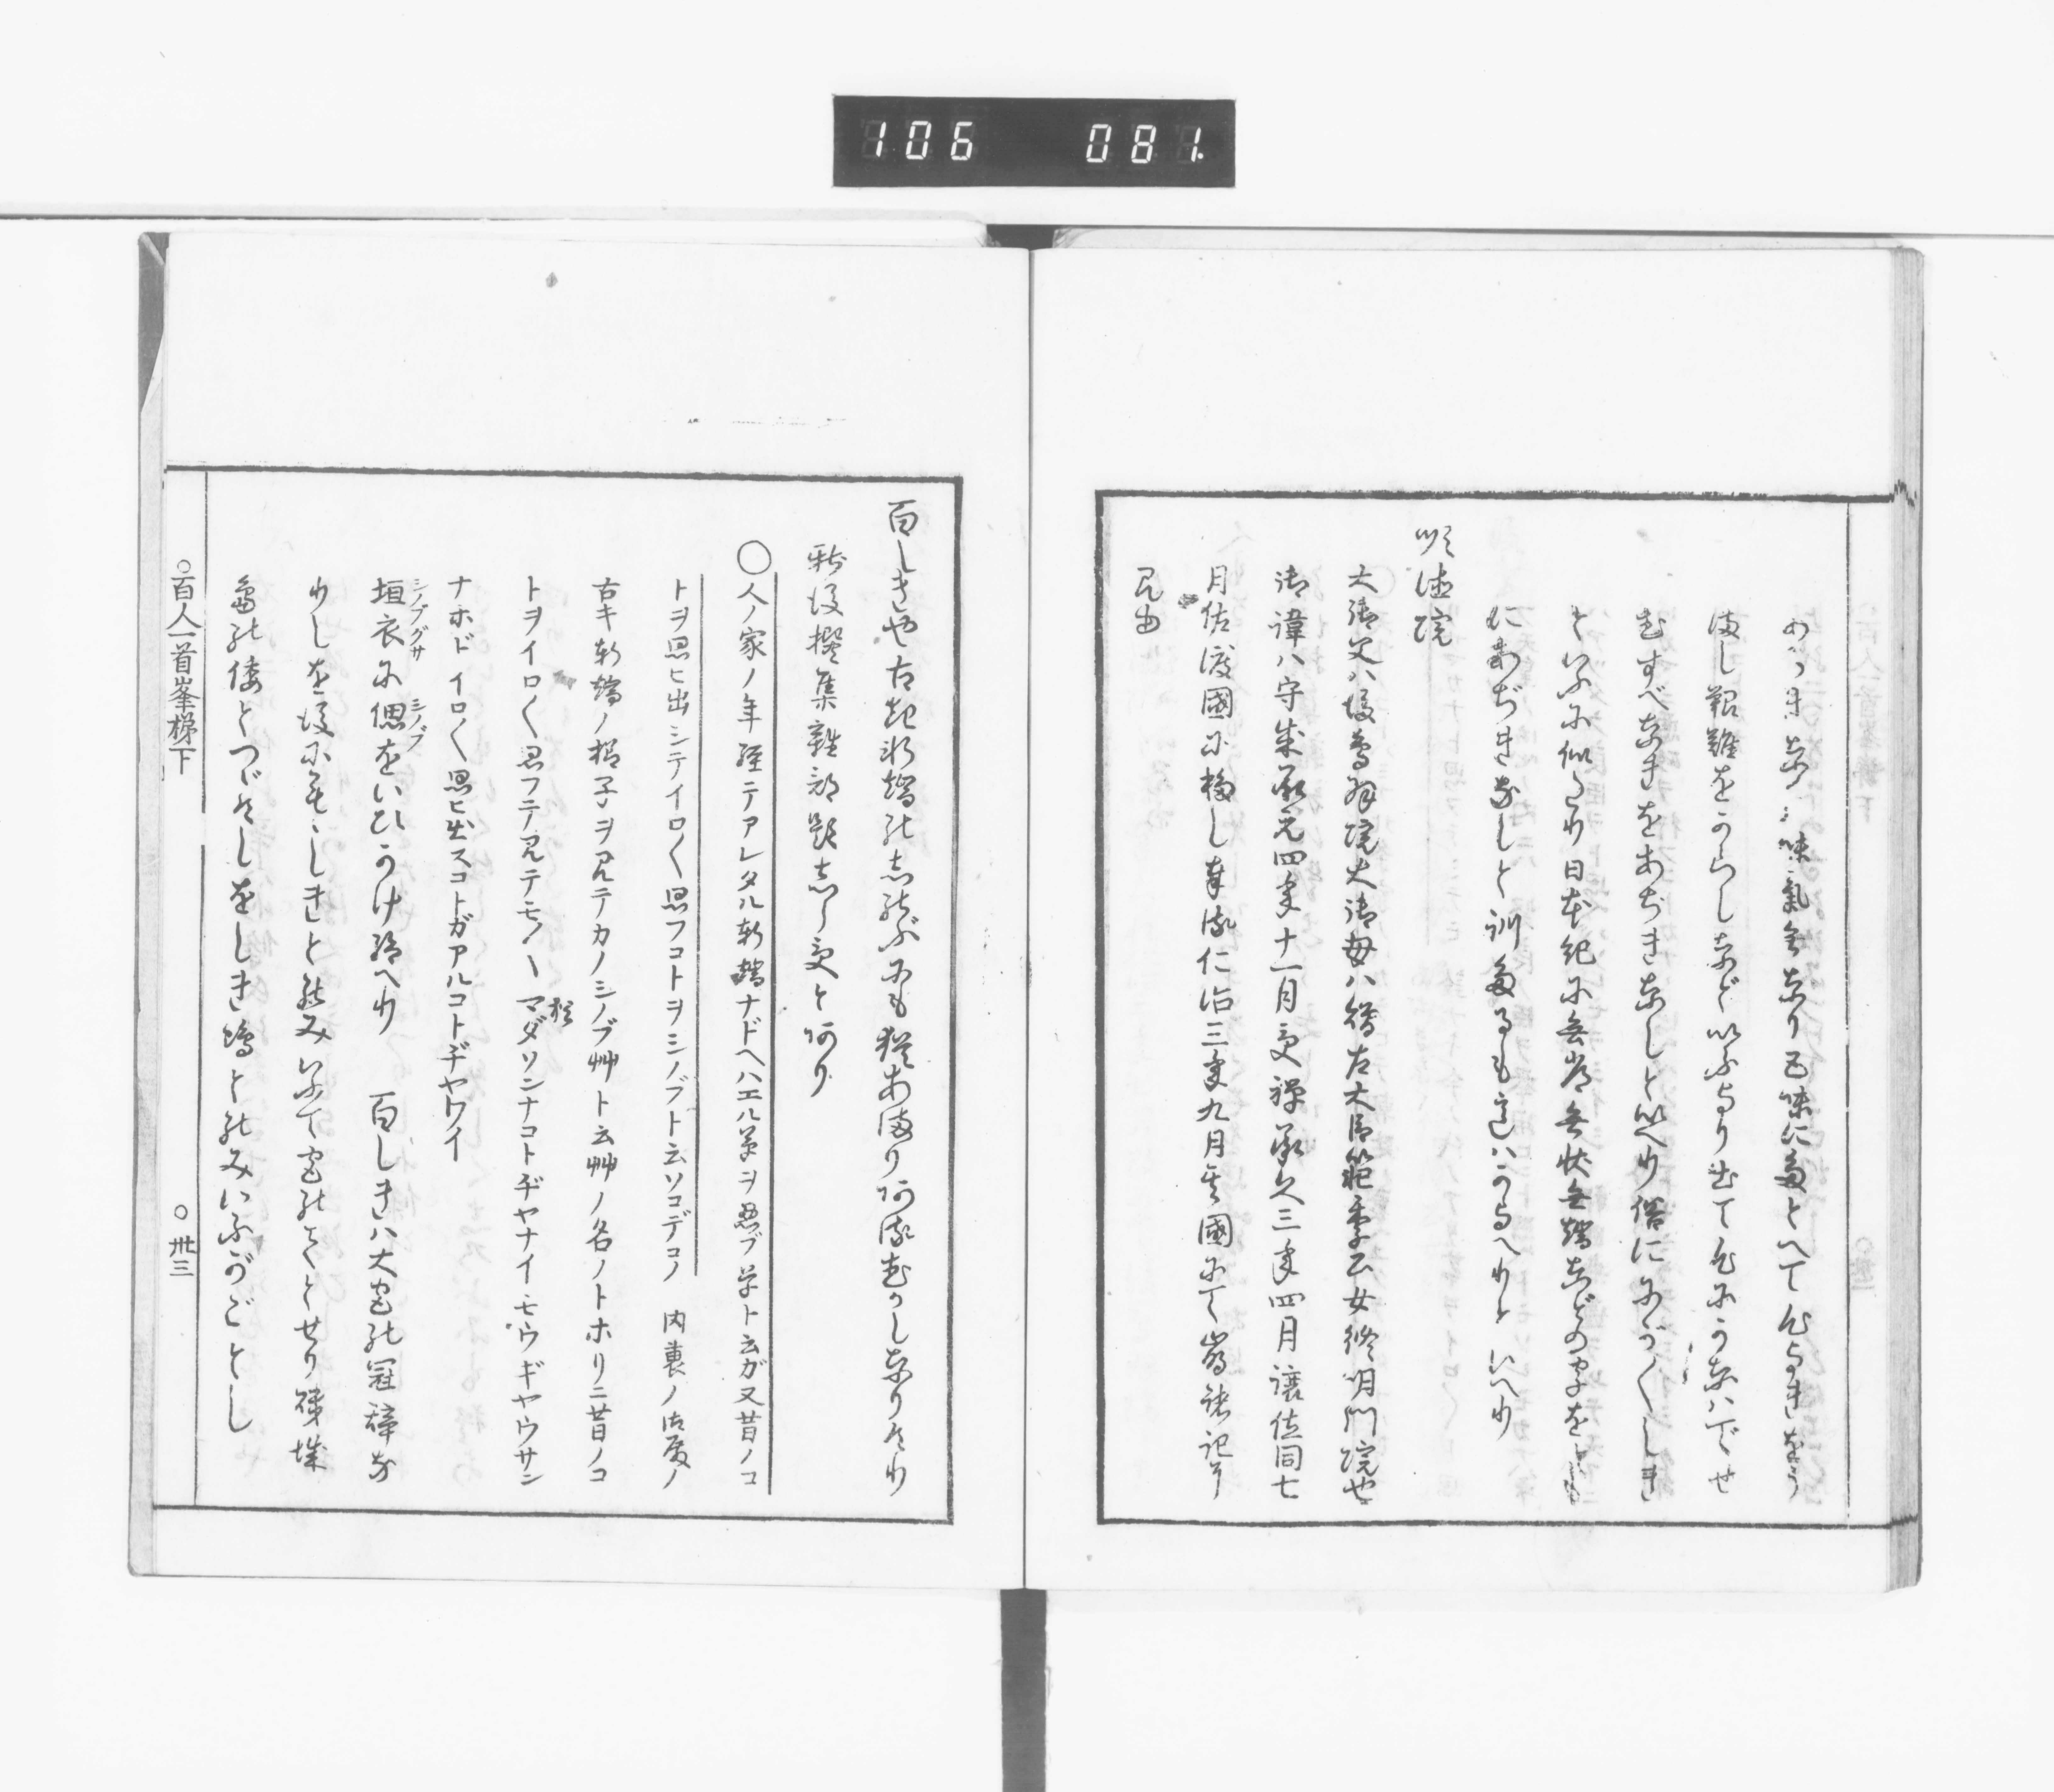 106 081
めつきなく味氣なきなり五味にたとへていとよきをう
ましし艱難をからしなどいふより出ていにかなはでせ
むすべなきをあぢきなしといへり俗ににが〳〵しき
といふに似たり日本紀に無道無状無端などの字をよも
にあぢきなしと訓たるも這はかよへりといへり
順徳院
大御父ハ後鳥羽院大御母ハ贈左大臣範季公女修明門院也
御諱ハ守成承元四年十一月受禅承久三年四月譲位同七
月佐渡國に移し奉る仁治三年九月其國にて崩諸記ニ
見ゆ
百しきや古き軒端の志のぶにも猶あまりある むかしなりけり
新後撰集雜部題志ら受とあり
〇人ノ家ノ年經テアレタル軒端ナドヘハエル草ヲ忍ブ草ト云ガ又昔ノコ
トヲ思ヒ出シテイロ〳〵思フコトヲシノブト云ソコデコノ 内裏ノ御殿ノ
古キ軒端ノ様子ヲ見テカノシノブ艸ト云艸ノ名ノトホリニ昔ノコ
トヲイロ〳〵思フテ見テモノ〳〵 猶マダソンナコトヂヤナイモウギヤウサン
ナホドイロ〳〵思ヒ出スコトガアルコトヂヤワイ
垣衣シノブグサに偲シノブをいひかけ給へり 百しきハ大宮の冠辭な
りしを後にももしきとのみいふて宮のことせり磯城
島の倭とつゞけしをしき島とのみいふがごとし
○百人一首峯梯下 ○卅三